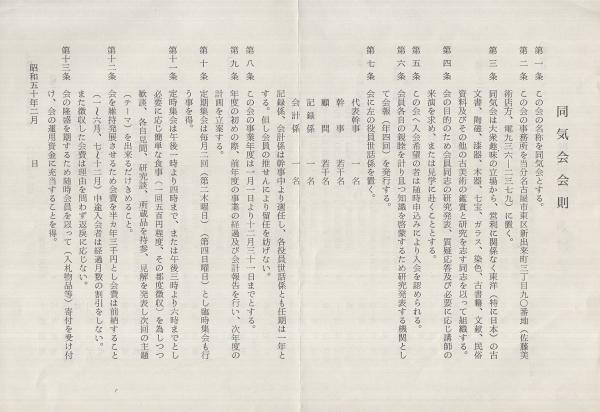 同気会会則
第一条　この会の名称を同気会とする。
第二条　この会の事務所を当分名古屋市東区新出来町三丁目九〇番地（佐藤美
術店方、電九三六―二三七九）に置く。
第三条　同気会は大衆趣味の立場から、営利に関係なく東洋（特に日本）の古
文書、陶磁、漆器、木器、七宝、ガラス、染色、古書籍、文献、民俗
資料及びその他の古美術の鑑賞と研究を志す同志を以って組織する。
第四条　会の目的のため会員同志の研究発表、質疑応答及び必要に応じ講師の
来演を求め、または見学に赴くこととする。
第五条　この会へ入会希望の者は随時申込みにより入会を認められる。
第六条　会員各自の親睦を計り且つ知識を啓蒙するため研究発表する機関とし
て会報（年四回）を発行する。
第七条　会に左の役員世話係を置く。
代表幹事　一名
幹事　若干名
顧問　若干名
記録係　一名
会計係　一名
記録係、会計係は幹事中より選任し、各役員世話係とも任期は一年と
する。但し会員の推せんにより留任を妨げない。
第八条　この会の事業年度は一月一日より十二月三十一日までとする。
第九条　年度の初めの際、前年度の事業の経過及び会計報告を行い、次年度の
計画を立案する。
第十条　定期集会は毎月二回（第二木曜日）（第四日曜日）とし臨時集会も行
う事を得。
第十一条　定時集会は午後一時より四時まで、または午後三時より六時までとし
必要に応じ簡単な食事（一回五百円程度、その都度徴収）を為しつつ
歓談、各自見聞、研究談、所蔵品を持参、見解を発表し次回の主題
（テーマ）を出来るだけきめること。
第十二条　会を維持発展させるため会費を半ヵ年三千円とし会費は前納すること
（一～六月、七～十二月）中途入会者は経過月数の割引をしない。
また徴収した会費は理由を問わず返戻に応じない。
第十三条　会の隆盛を期するため随時会員を以って（入札物品等）寄付を受け付
け、会の運用資金に充当することを得。
昭和五十年二月　日